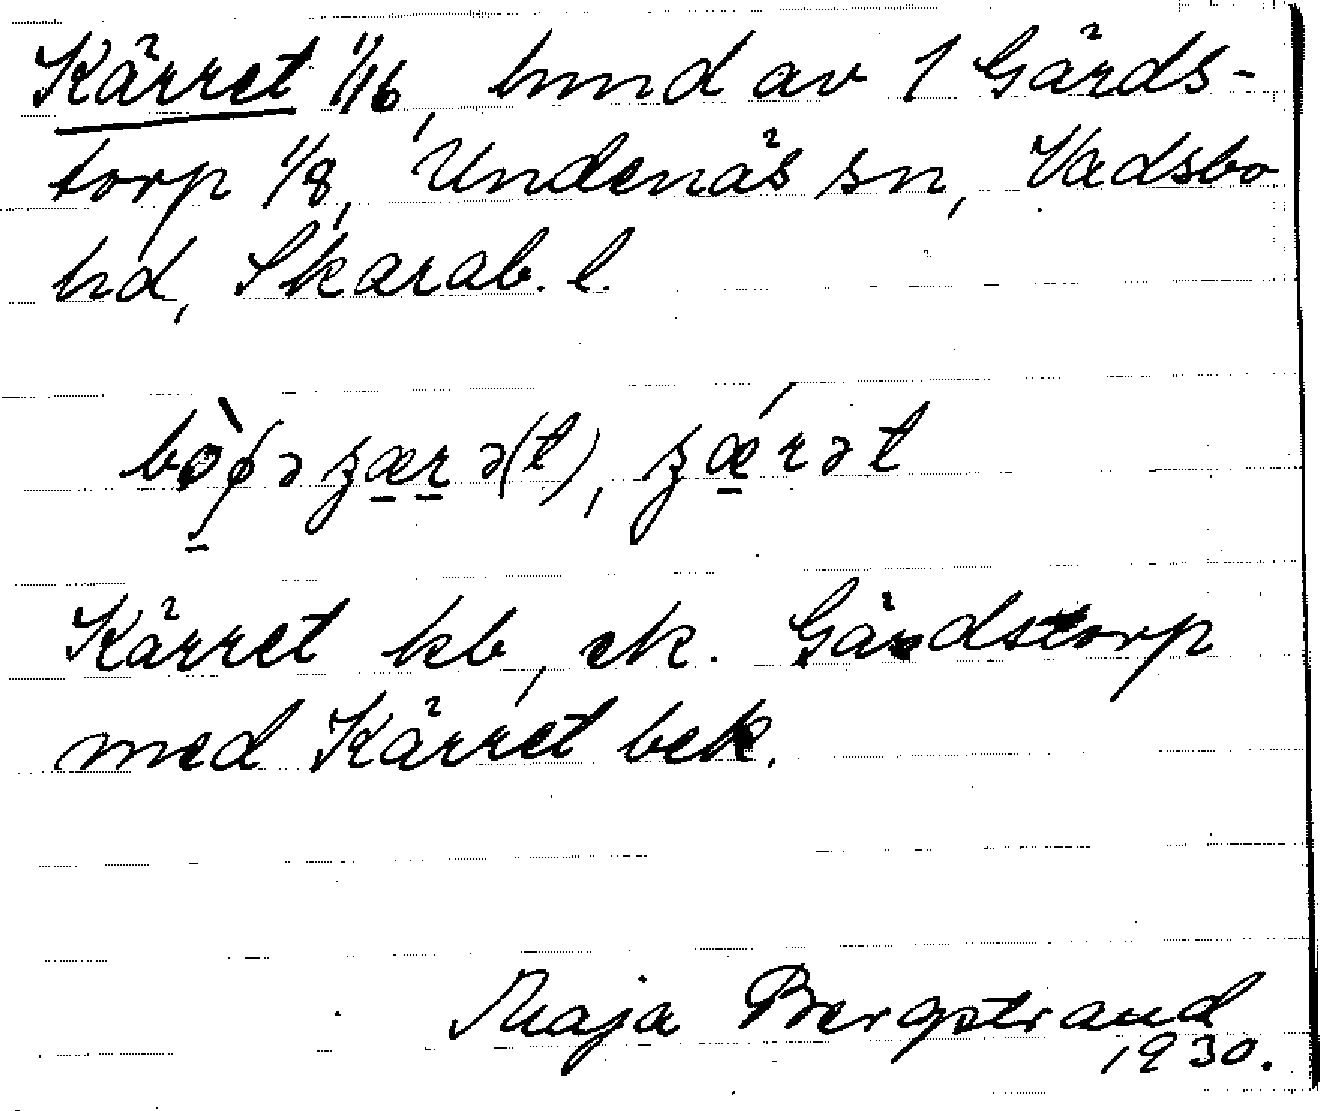 Kärret 1/16, hmd av 1 Gärds-
torp 1/8, Undenäs sn, Vadsbo
hd, Skarab. l.
Kärret kb, ek. Gärdstorp
med Kärret bek.
Maja Bergstrand
1930.